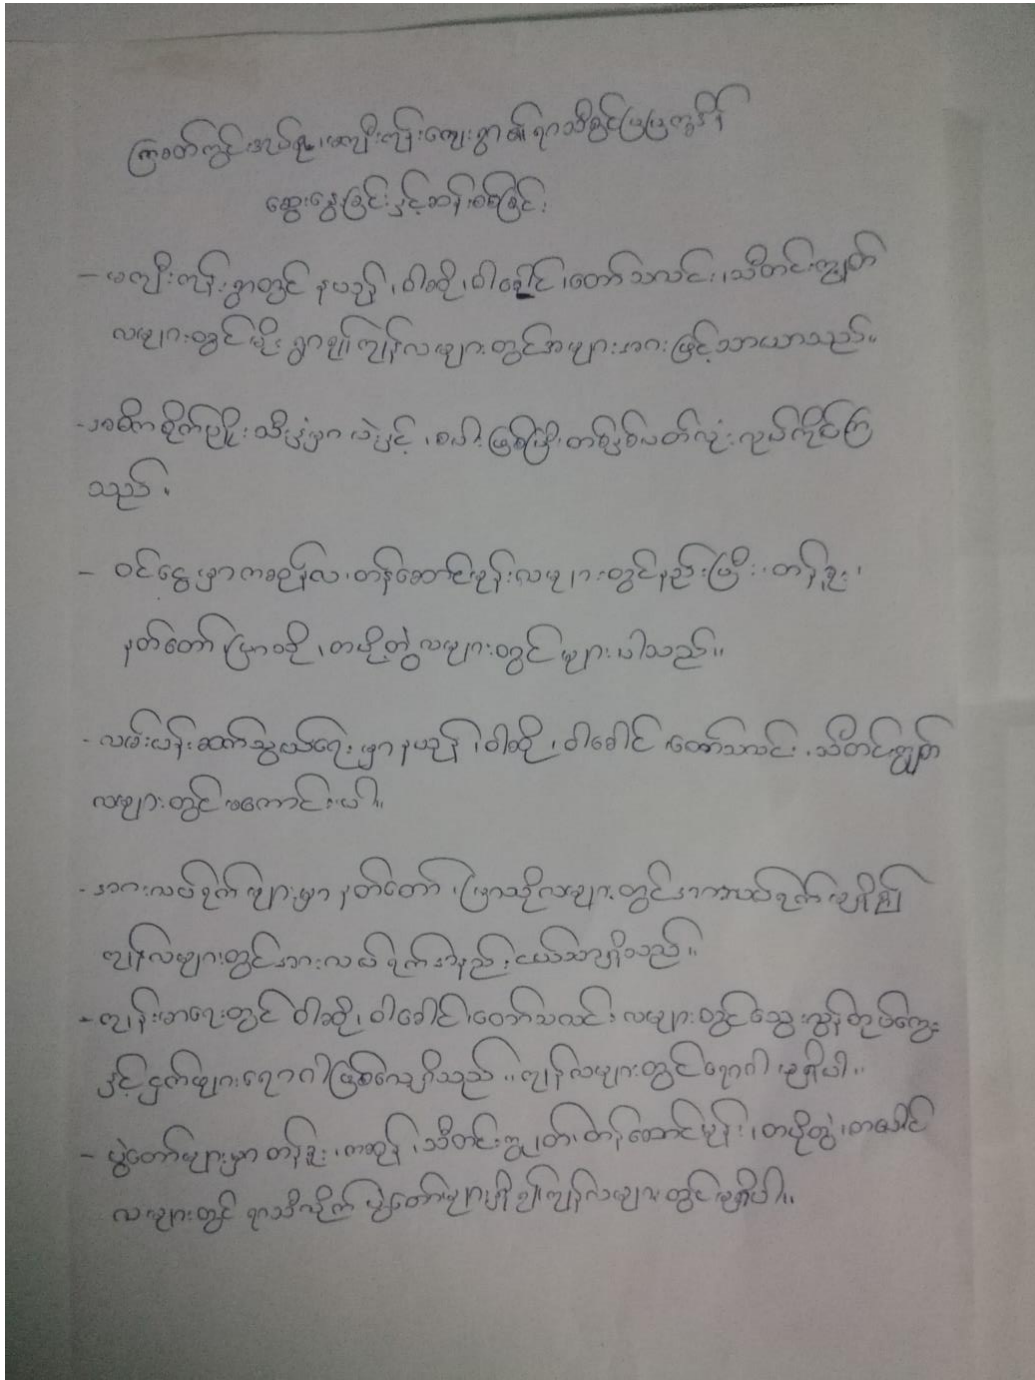 ကြခတ်ကွင်းအုပ်စု၊ မကျီးကုန်းကျေးရွာ၏ ရာသီခွင်ပြပြက္ခဒိန်
ဆွေးနွေးခြင်းနှင့်ဆန်းစစ်ခြင်း
- မကျီးကုန်းရွာတွင် နယုန်၊ ဝါဆို၊ ဝါခေါင်၊ တော်သလင်း၊ သီတင်းကျွတ်
လများတွင် မိုးရွာ၍ ကျန်လများတွင် အများအားဖြင့် သာယာသည်။
- အဓိကစိုက်ပျိုးသီးနှံမှာ ပဲနှင့်၊ စပါးဖြစ်ပြီး တစ်နှစ်ပတ်လုံး လုပ်ကိုင်ကြ
သည်။
- ဝင်ငွေမှာ ကဆုန်လ၊ တန်ဆောင်မုန်းလများတွင်နည်းပြီး၊ တန်ခူး၊
နတ်တော်၊ ပြာသို၊ တပို့တွဲလများတွင် များပါသည်။
- လမ်းပန်းဆက်သွယ်ရေးမှာ နယုန်၊ ဝါဆို၊ ဝါခေါင်၊ တော်သလင်း၊ သီတင်းကျွတ်
လများတွင် မကောင်းပါ။
- အားလပ်ရက်များမှာ နတ်တော်၊ ပြာသိုလများတွင် အားလပ်ရက်များရှိ၍
ကျန်လများတွင် အားလပ်ရက်အနည်းငယ်သာရှိသည်။
- ကျန်းမာရေးတွင် ဝါဆို၊ ဝါခေါင်၊ တော်သလင်းလများတွင် သွေးလွန်တုပ်ကွေး
နှင့် ငှက်ဖျားရောဂါဖြစ်လေ့ရှိသည်။ ကျန်လများတွင် ရောဂါမရှိပါ။
- ပွဲတော်များမှာ တန်ခူး၊ ကဆုန်၊ သီတင်းကျွတ်၊ တန်ဆောင်မုန်း၊ တပို့တွဲ၊ တပေါင်း
လများတွင် ရာသီလိုက်ပွဲတော်များရှိ၍ ကျန်လများတွင် မရှိပါ။